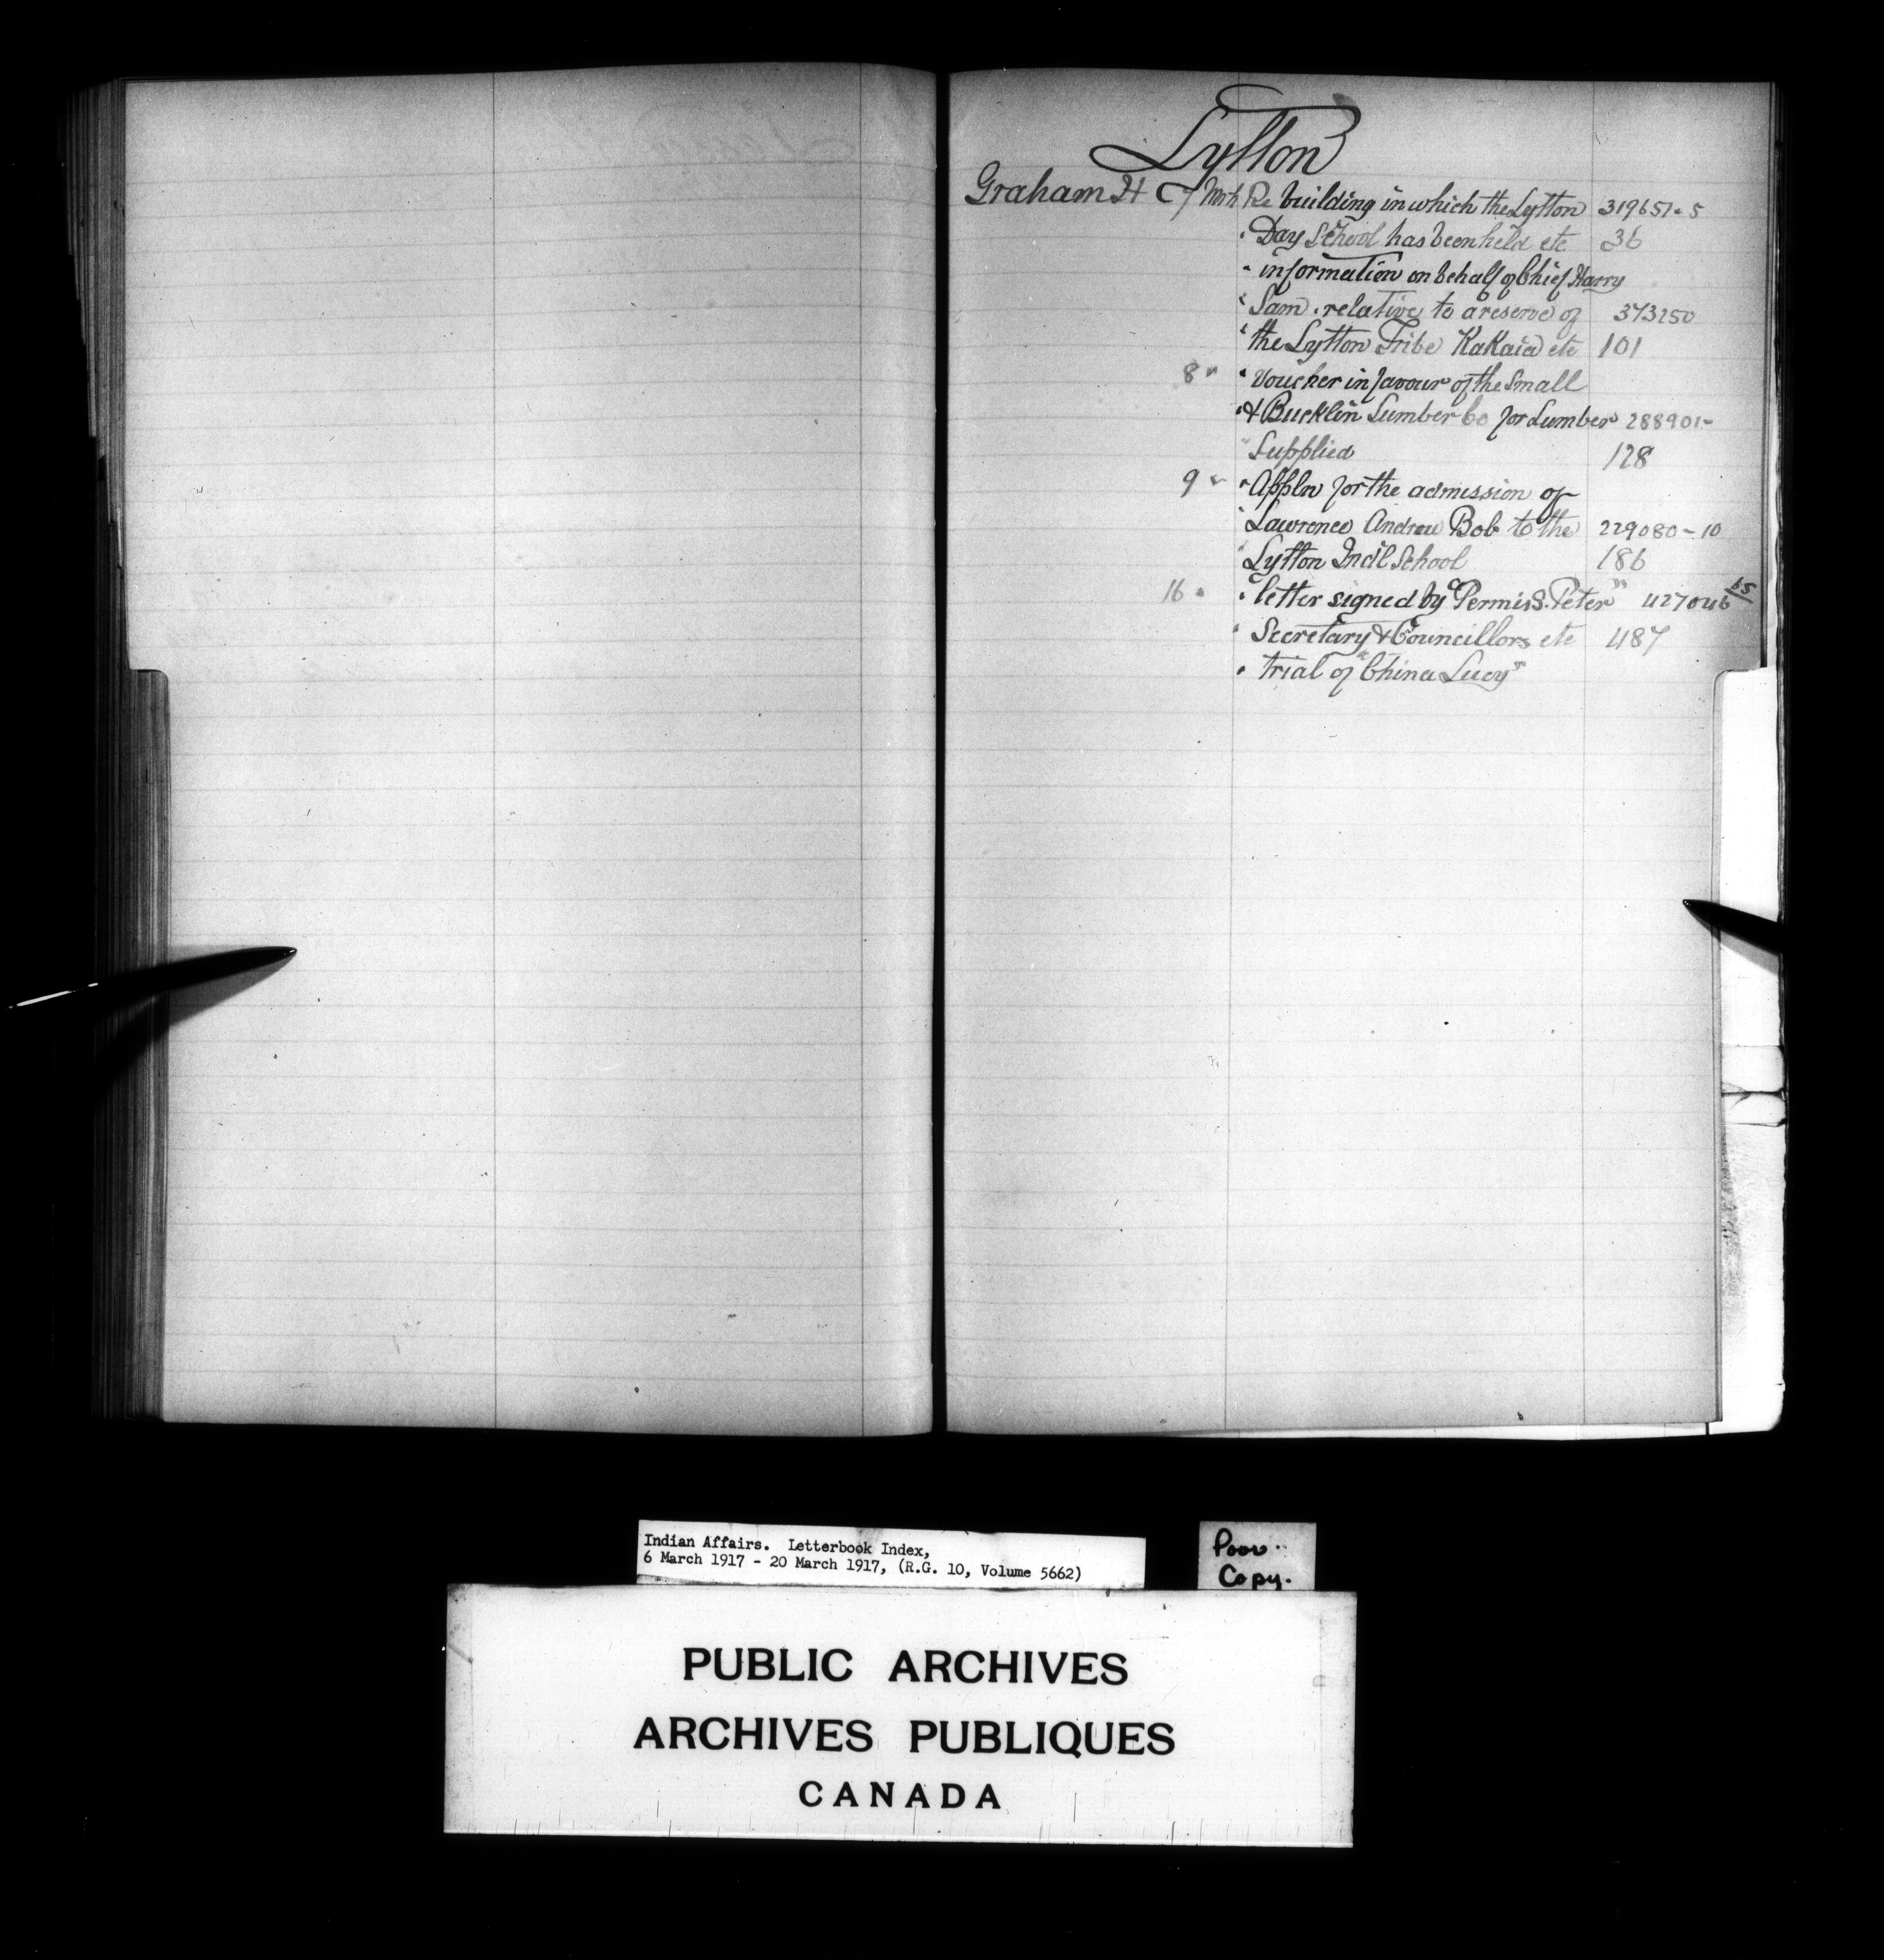 Lytton
Graham H C 7 Mch Re building in which the Lytton 319651-5
" Day School has been held etc 36
" information on behalf of Chief Harry
" Sam. relative to a reserve of 373250
" the Lytton Tribe KaKaia etc 101
8 " " Voucher in favour of the Small
" & Bucklin Lumber Co for Lumber 288901-
" Supplied 128
9 " " Appln for the admission of
" Lawrence Andrew Bob to the 229080-10
" Lytton Ind'l School 186
16 " " letter signed by "Permis S. Peter" 427046
" Secretary & Councillors etc 487
" trial of "China Lucy"
Indian Affairs. Letterbook Index,
6 March 1917 - 20 March 1917, (R.G. 10, Volume 5662)
Poor
Copy.
PUBLIC ARCHIVES
ARCHIVES PUBLIQUES
CANADA